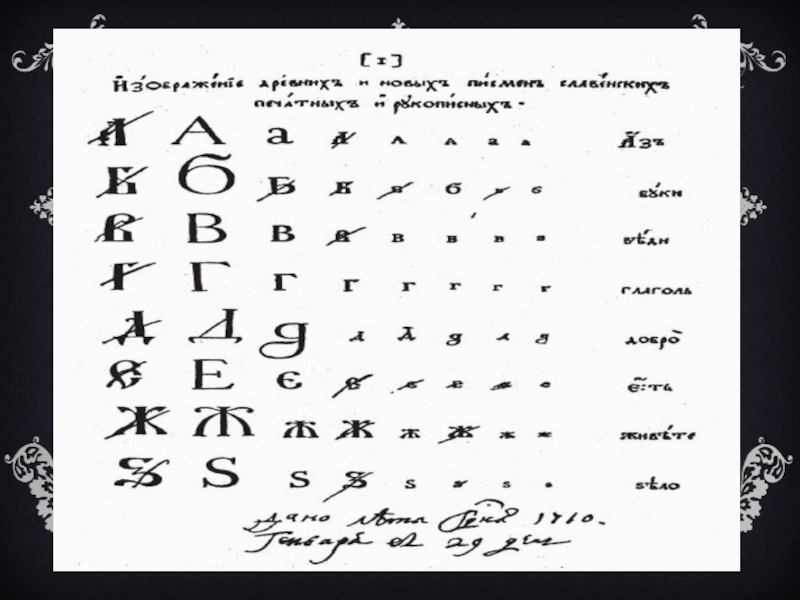 [1]
И҆зѡбраже́нїе дре́внихъ и новыхъ пи́сменъ славе́нскихъ
печа́тныхъ и҆ рꙋкопи́сныхъ.
А А а а а а а а А҆́зъ
Б Б Б Б б б б б бꙋ́ки
В В в в в в в в вѣ́ди
Г Г г г г г г г глаголь
Д Д д д д д д д добро̀
Є Е є є е е е е е҆́сть
Ж Ж ж Ж ж ж ж ж живѣ́те
Ѕ Ѕ ѕ Ѕ ѕ ѕ ѕ ѕ ѕѣло
Дано лѣта 1710.
Генваря 29 дня